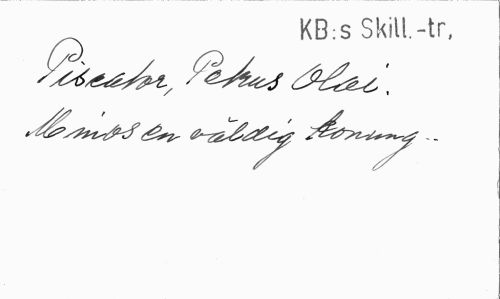 KB:s Skill.-tr,
Piscator, Petrus Olai.
Minos en väldig konung..